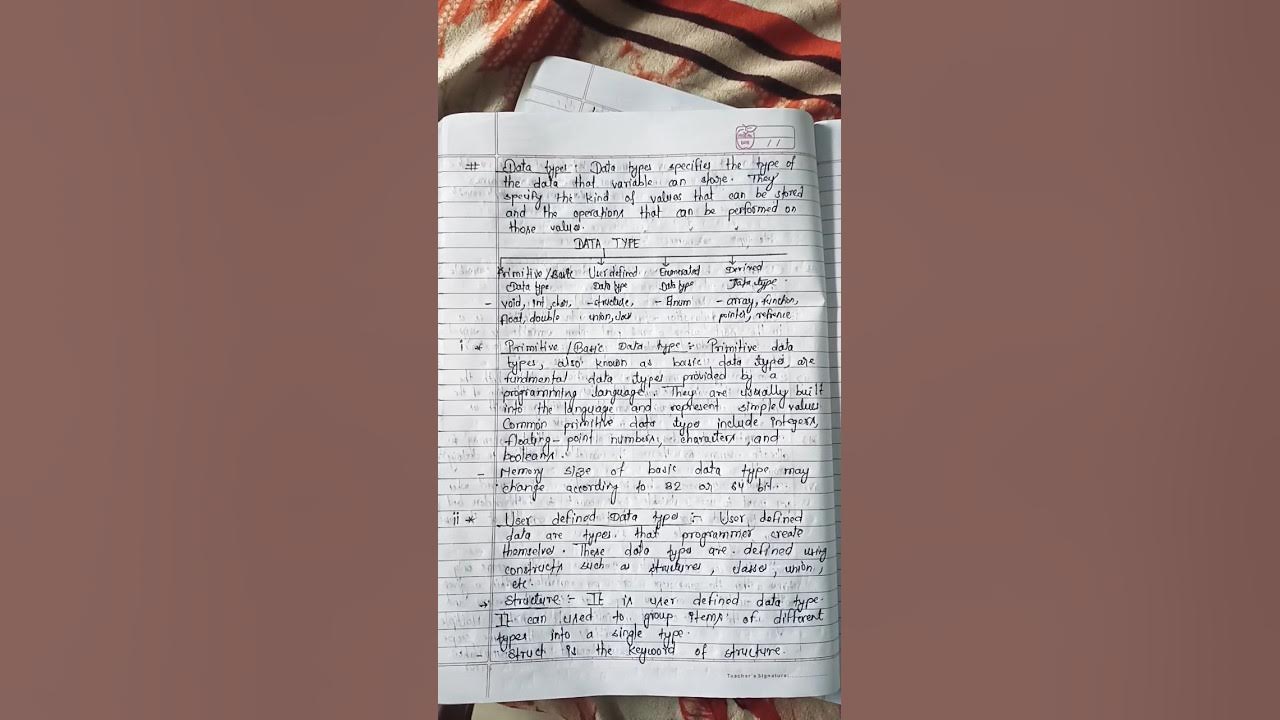 # Data types : Data types specifies the type of
the data that variable can store. They
specify the kind of values that can be stored
and the operations that can be performed on
those values.
DATA TYPE
Primitive/Basic User defined Enumerated Derived
Data type Data type Data type Data type
- void, int, char, - structure, - Enum - array, function,
float, double union, class pointer, refrence
i * Primitive /Basic Data type :- Primitive data
types, also known as basic data types, are
fundmental data types provided by a
programming language. They are usually built
into the language and represent simple values
Common primitive data type include integers,
floating-point numbers, characters, and
booleans.
- Memory size of basic data type may
change according to 32 or 64 bit.
ii * User defined Data type :- User defined
data are types that programmer create
themselves. These data type are defined using
constructs such as structures, classe, union,
etc.
→ Structure :- It is user defined data type.
It can used to group items of different
types into a single type.
- Struct is the keyword of structure.
Teacher's Signature: